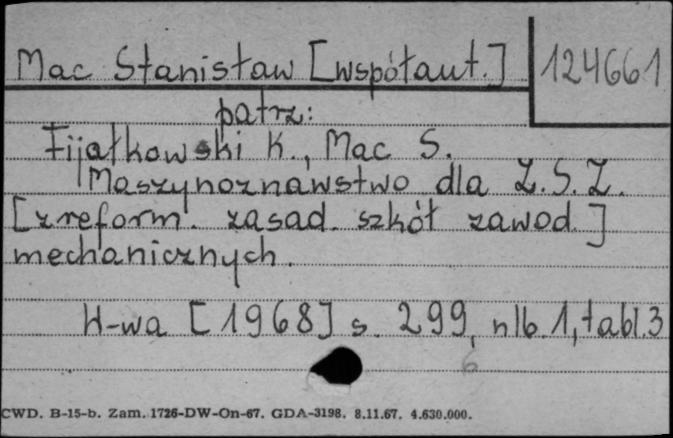 Mac Stanisław [współaut.] 124661
patrz:
Fijałkowski K., Mac S.
Maszynoznawstwo dla Z.S.Z.
[zreform. zasad. szkół zawod.]
mechanicznych.
W-wa [1968] s. 299, nlb. 1, tabl. 3
6
CWD. B-15-b. Zam. 1726-DW-On-67. GDA-3198. 8.11.67. 4.630.000.